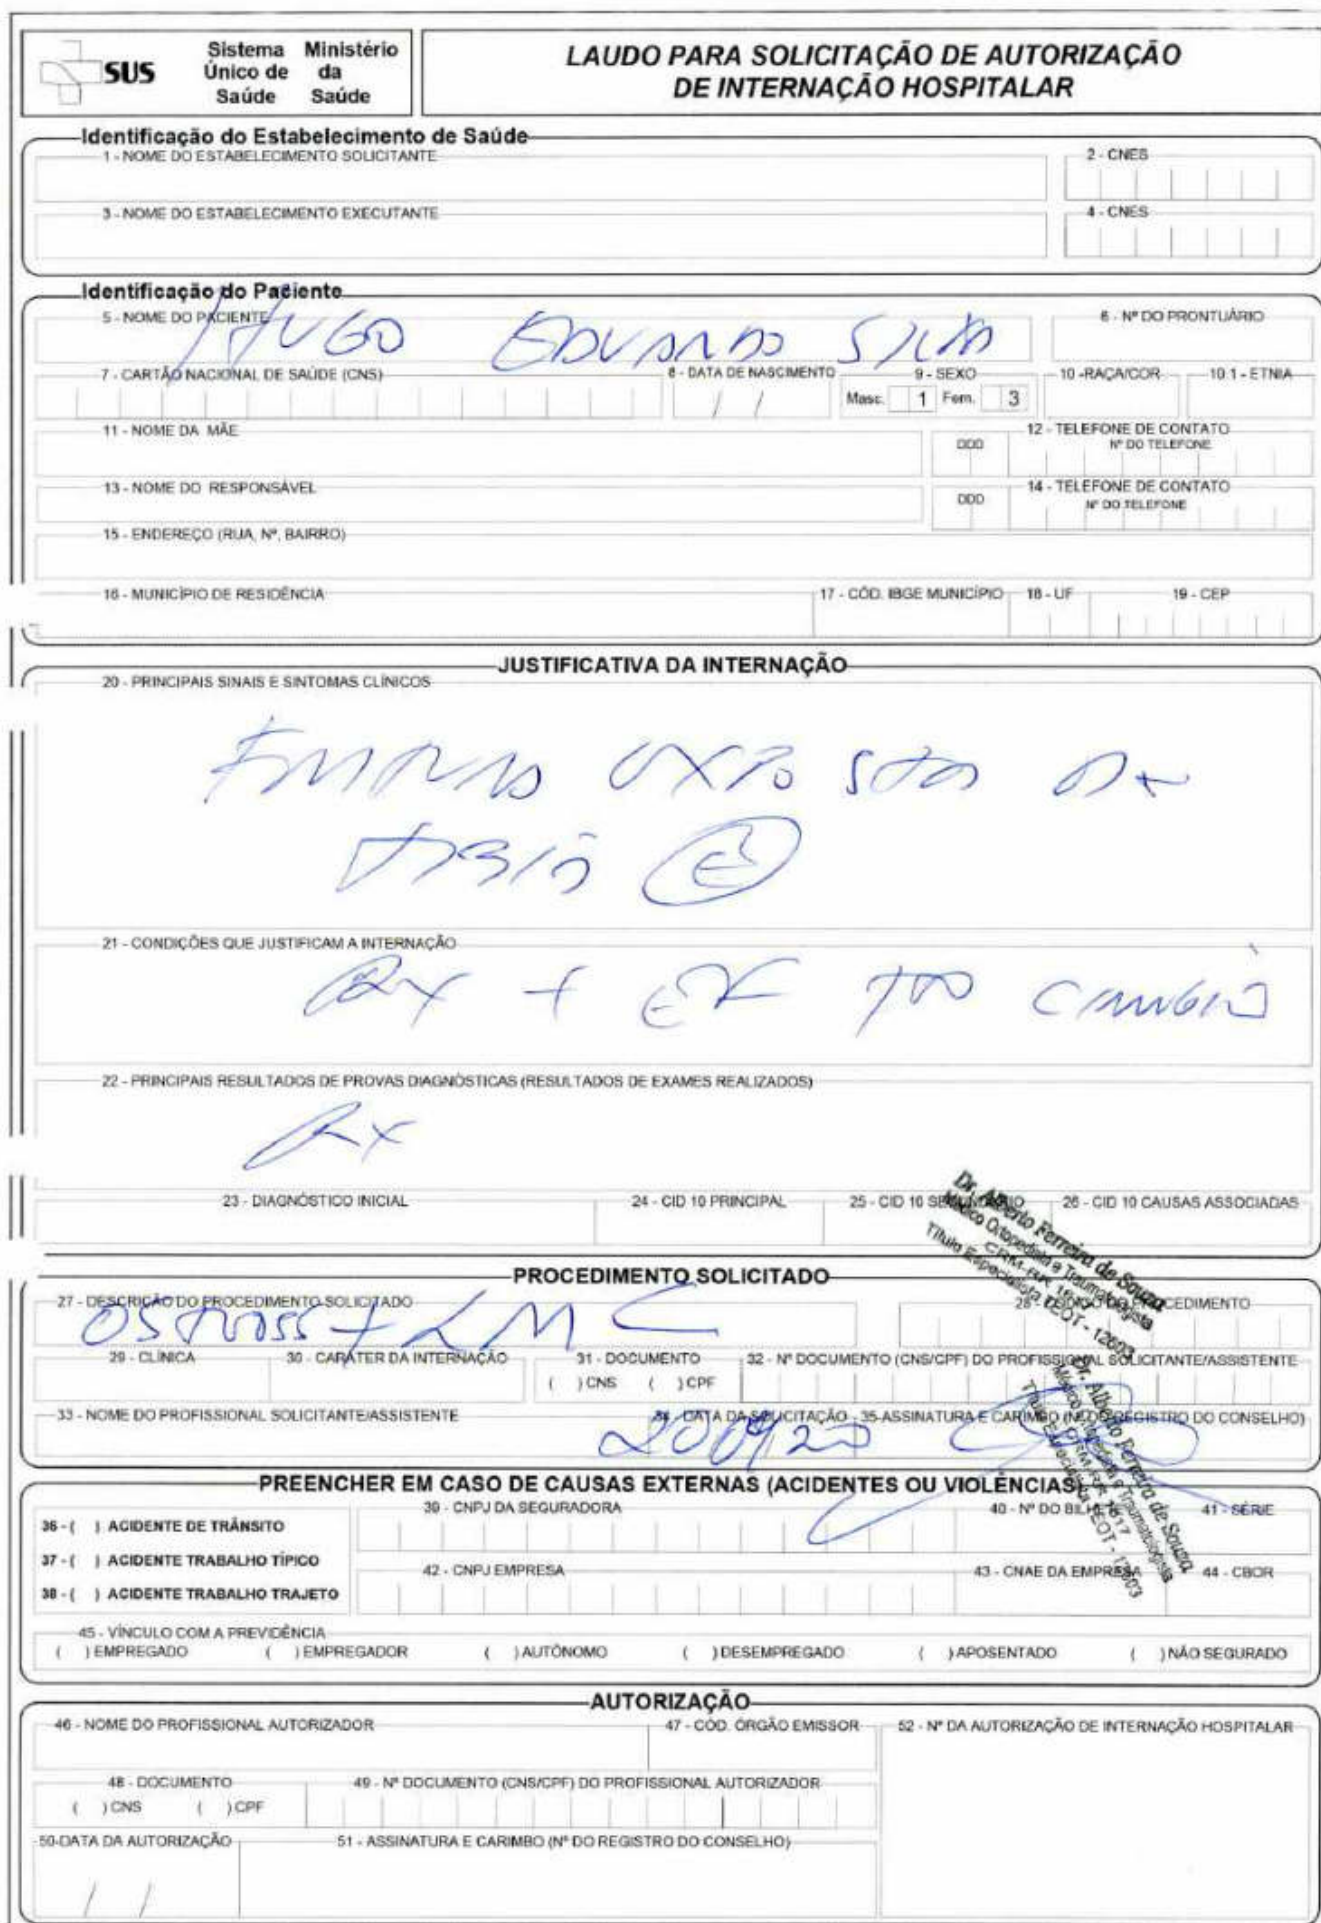 SUS
Sistema Único de Saúde
Ministério da Saúde
LAUDO PARA SOLICITAÇÃO DE AUTORIZAÇÃO
DE INTERNAÇÃO HOSPITALAR
Identificação do Estabelecimento de Saúde
1 - NOME DO ESTABELECIMENTO SOLICITANTE
2 - CNES
3 - NOME DO ESTABELECIMENTO EXECUTANTE
4 - CNES
Identificação do Paciente
5 - NOME DO PACIENTE
6 - Nº DO PRONTUÁRIO
HUGO EDUARDO SILVA
7 - CARTÃO NACIONAL DE SAÚDE (CNS)
8 - DATA DE NASCIMENTO
9 - SEXO
10 -RAÇA/COR
10.1 - ETNIA
/ /
Masc. 1 Fem. 3
11 - NOME DA MÃE
12 - TELEFONE DE CONTATO
DDD Nº DO TELEFONE
13 - NOME DO RESPONSÁVEL
14 - TELEFONE DE CONTATO
DDD Nº DO TELEFONE
15 - ENDEREÇO (RUA, Nº, BAIRRO)
16 - MUNICÍPIO DE RESIDÊNCIA
17 - CÓD. IBGE MUNICÍPIO
18 - UF
19 - CEP
JUSTIFICATIVA DA INTERNAÇÃO
20 - PRINCIPAIS SINAIS E SINTOMAS CLÍNICOS
exposta
tíbia E
21 - CONDIÇÕES QUE JUSTIFICAM A INTERNAÇÃO
RX + EF TTO
22 - PRINCIPAIS RESULTADOS DE PROVAS DIAGNÓSTICAS (RESULTADOS DE EXAMES REALIZADOS)
RX
23 - DIAGNÓSTICO INICIAL
24 - CID 10 PRINCIPAL
25 - CID 10 SECUNDÁRIO
26 - CID 10 CAUSAS ASSOCIADAS
Dr. Alberto Ferreira de Souza
Médico Ortopedista e Traumatologista
Título Especialista TEOT - 12603
PROCEDIMENTO SOLICITADO
27 - DESCRIÇÃO DO PROCEDIMENTO SOLICITADO
28 - CÓDIGO DO PROCEDIMENTO
+ LMC
29 - CLÍNICA
30 - CARÁTER DA INTERNAÇÃO
31 - DOCUMENTO
( ) CNS ( ) CPF
32 - Nº DOCUMENTO (CNS/CPF) DO PROFISSIONAL SOLICITANTE/ASSISTENTE
33 - NOME DO PROFISSIONAL SOLICITANTE/ASSISTENTE
34 - DATA DA SOLICITAÇÃO
35-ASSINATURA E CARIMBO (Nº DO REGISTRO DO CONSELHO)
Dr. Alberto Ferreira de Souza
Médico Ortopedista e Traumatologista
Título Especialista TEOT - 12603
PREENCHER EM CASO DE CAUSAS EXTERNAS (ACIDENTES OU VIOLÊNCIAS)
36 - ( ) ACIDENTE DE TRÂNSITO
37 - ( ) ACIDENTE TRABALHO TÍPICO
38 - ( ) ACIDENTE TRABALHO TRAJETO
39 - CNPJ DA SEGURADORA
40 - Nº DO BILHETE
41 - SÉRIE
42 - CNPJ EMPRESA
43 - CNAE DA EMPRESA
44 - CBOR
45 - VÍNCULO COM A PREVIDÊNCIA
( ) EMPREGADO ( ) EMPREGADOR ( ) AUTÔNOMO ( ) DESEMPREGADO ( ) APOSENTADO ( ) NÃO SEGURADO
AUTORIZAÇÃO
46 - NOME DO PROFISSIONAL AUTORIZADOR
47 - CÓD. ÓRGÃO EMISSOR
52 - Nº DA AUTORIZAÇÃO DE INTERNAÇÃO HOSPITALAR
48 - DOCUMENTO
( ) CNS ( ) CPF
49 - Nº DOCUMENTO (CNS/CPF) DO PROFISSIONAL AUTORIZADOR
50-DATA DA AUTORIZAÇÃO
/ /
51 - ASSINATURA E CARIMBO (Nº DO REGISTRO DO CONSELHO)